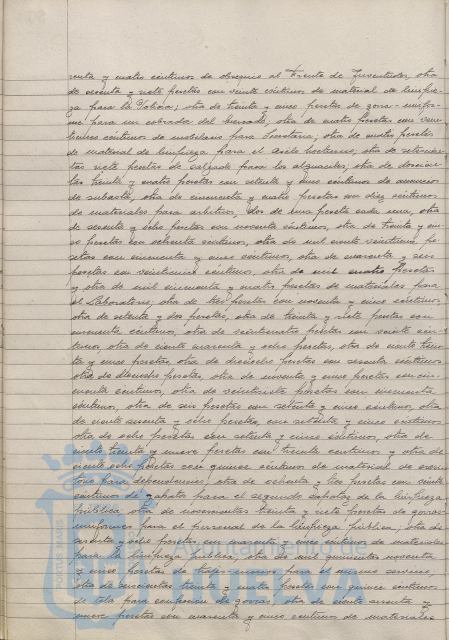 renta y cuatro céntimos de obsequios al Frente de Juventudes, otra
de sesenta y siete pesetas con veinte céntimos de material de limpie-
za para la Policía; otra de treinta y cinco pesetas de gorra-unifor-
me para un cobrador del Mercado, otra de cuatro pesetas con
céntimos de mobiliario para Secretaría; otra de cuatro pesetas
de material de limpieza para el Asilo Nocturno, otra de setecien-
tas siete pesetas de calzado para los alguaciles; otra de doscien-
tas treinta y cuatro pesetas con setenta y cinco céntimos de anuncios
de subasta, otra de cincuenta y cuatro pesetas con diez céntimos
de materiales para arbitrios, dos de una peseta cada una, otra
de sesenta y ocho pesetas con noventa céntimos, otra de treinta y cin-
co pesetas con ochenta céntimos, otra de mil ciento veintiuna pe-
setas con cincuenta y cinco céntimos, otra de cuarenta y seis
pesetas con veinticinco céntimos, otra de mil cuatro pesetas
y otra de mil cincuenta y cuatro pesetas de materiales para
el Laboratorio, otra de tres pesetas con noventa y cinco céntimos,
otra de setenta y dos pesetas, otra de treinta y siete pesetas con
cincuenta céntimos, otra de veinticuatro pesetas con veinte cén-
timos, otra de ciento cuarenta y ocho pesetas, otra de ciento trein-
ta y cinco pesetas, otra de dieciocho pesetas con sesenta céntimos
otra de doscientas pesetas, otra de noventa y cinco pesetas con cin-
cuenta céntimos, otra de veintisiete pesetas con cincuenta
céntimos, otra de seis pesetas con setenta y cinco céntimos, otra
de ciento sesenta y ocho pesetas con setenta y cinco céntimos
otra de ocho pesetas con setenta y cinco céntimos, otra de
ciento treinta y nueve pesetas con treinta céntimos y otra de
ciento ocho pesetas con quince céntimos de material de escri-
torio para dependencias, otra de ochenta y tres pesetas con veinte
céntimos de zapatos para el segundo capataz de la limpieza
pública, otra de novecientas treinta y siete pesetas de gorras
uniformes para el personal de la limpieza pública; otra de
sesenta y ocho pesetas con cuarenta y cinco céntimos de materiales
para la limpieza pública, otra de mil quinientas noventa
y cinco pesetas de trajes para el mismo servicio,
otra de seiscientas treinta y cuatro pesetas con quince céntimos
de tela para confección de gorras, otra de ciento sesenta y
nueve pesetas con cuarenta y cinco céntimos de materiales